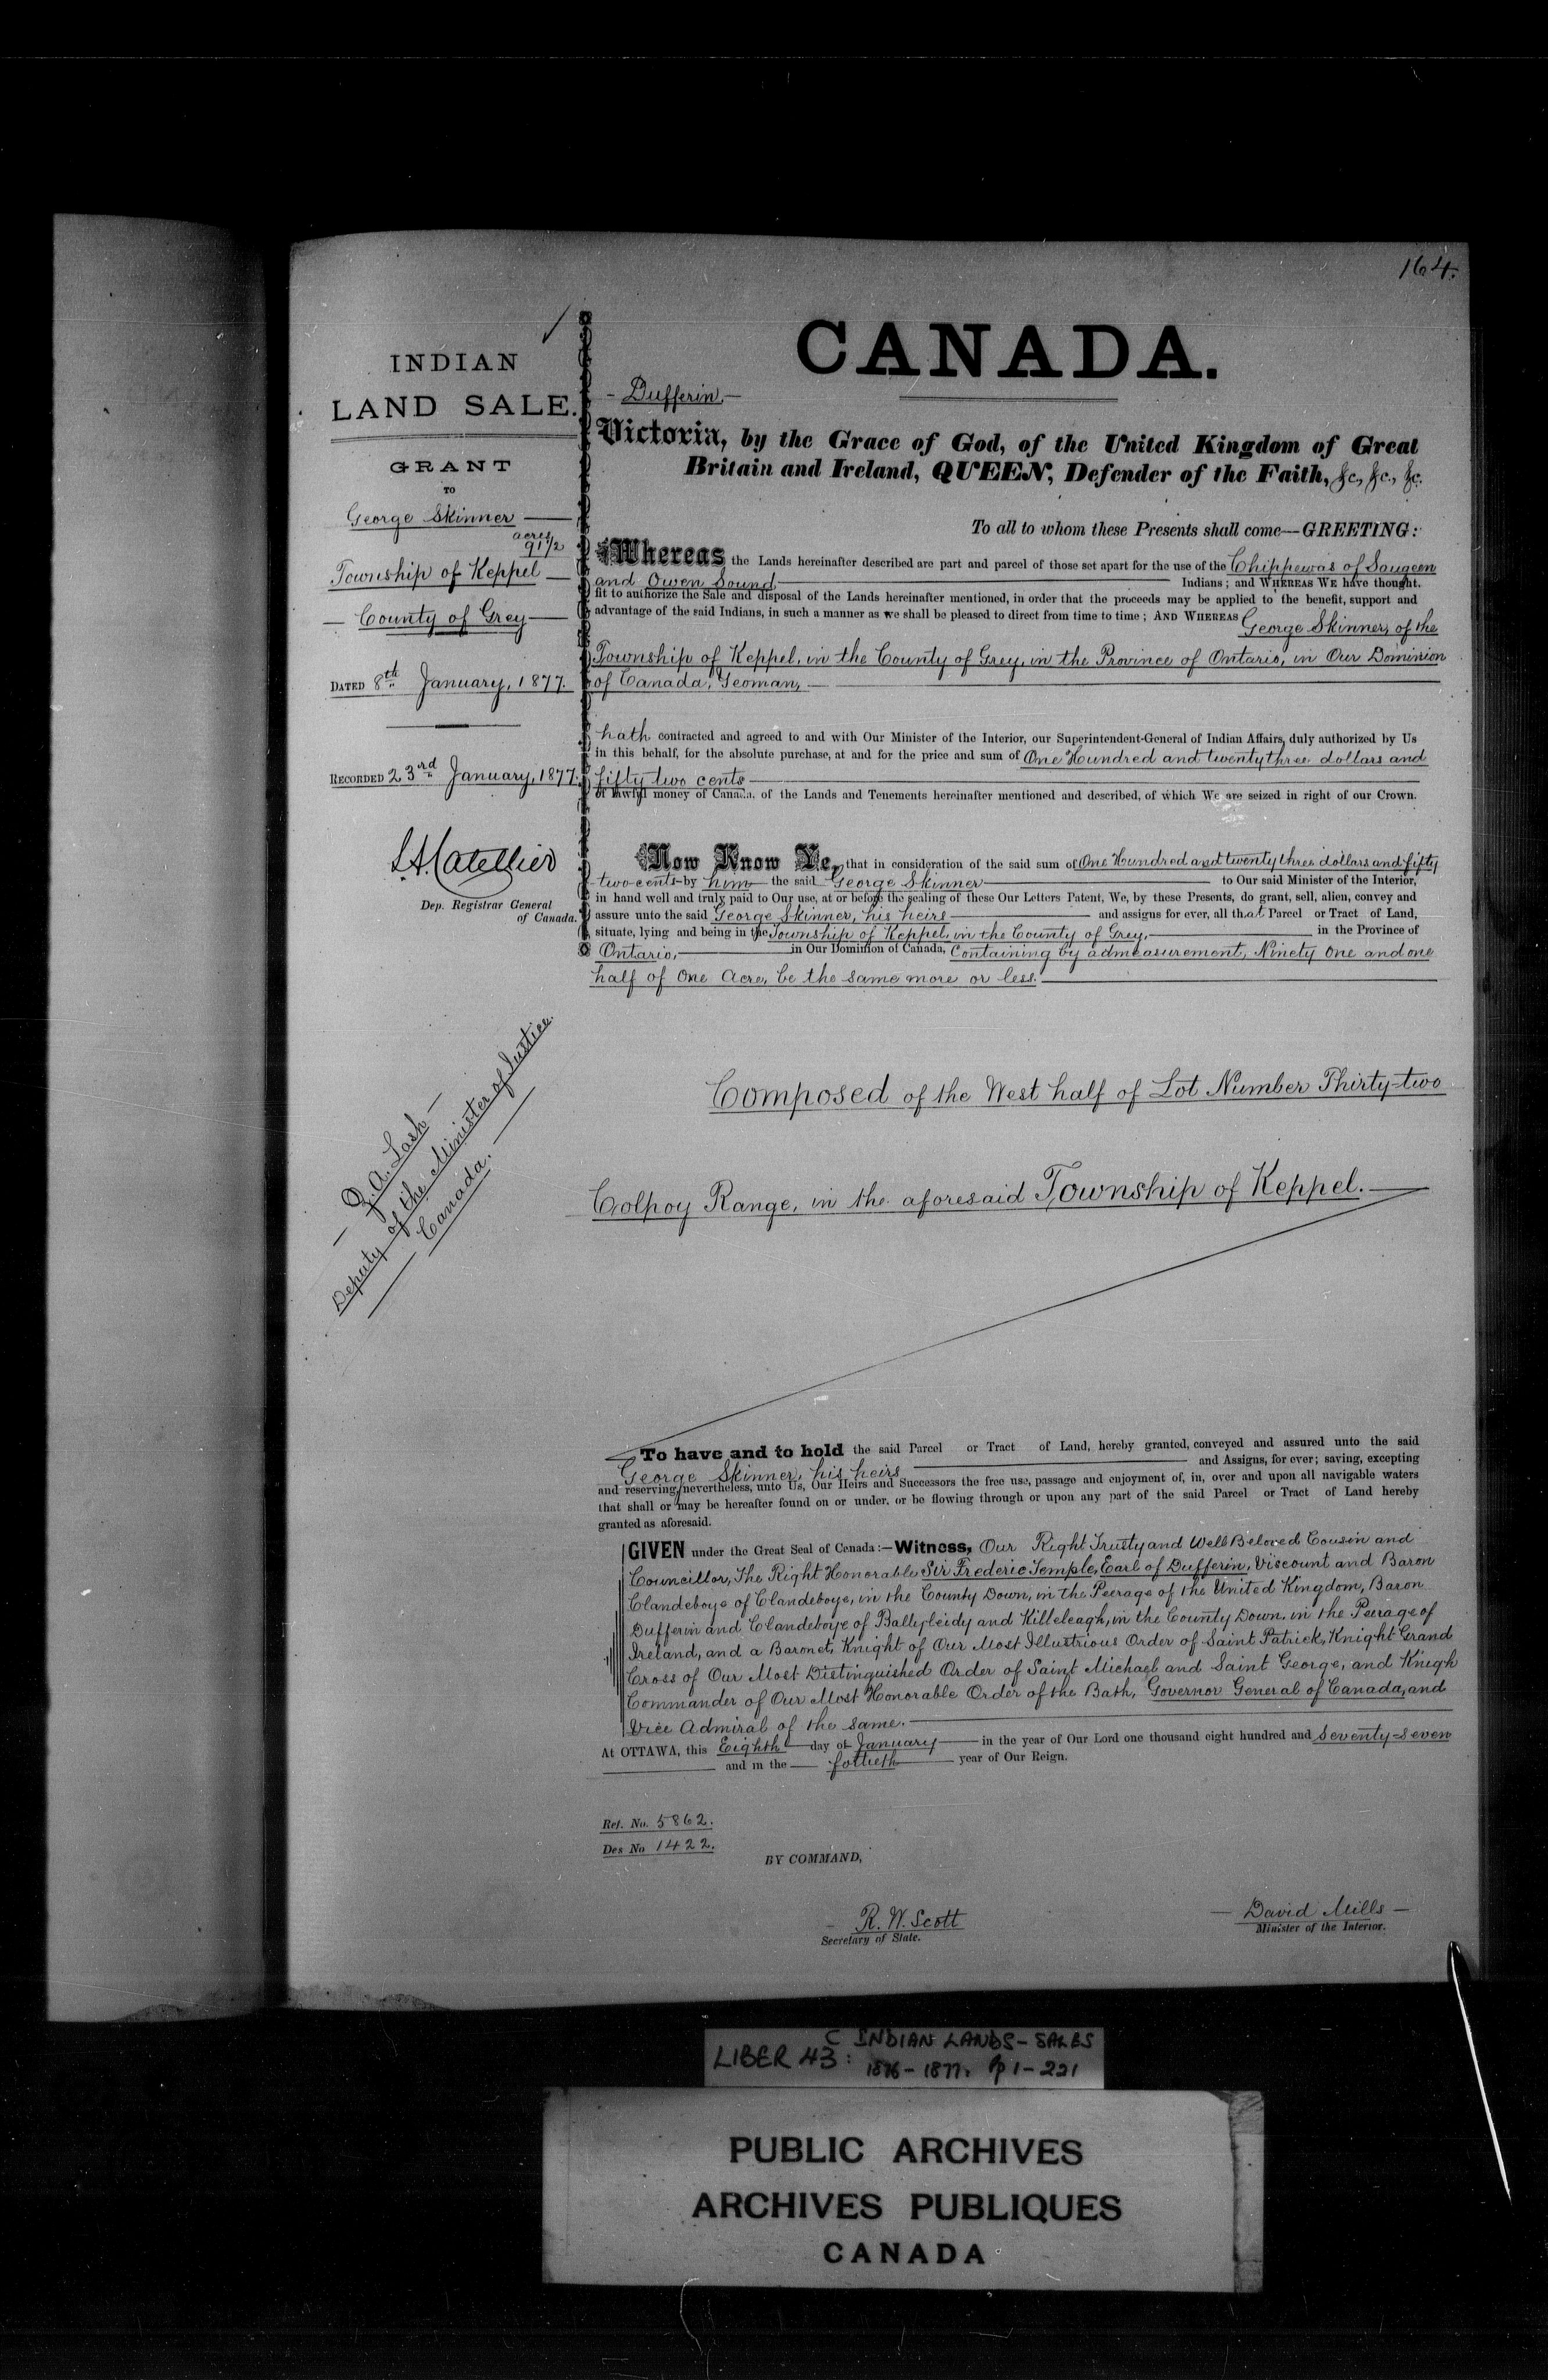 164.
INDIAN
LAND SALE.
GRANT
TO
George Skinner
acres
91 1/2
Township of Keppel
County of Grey
DATED 8th January, 1877.
RECORDED 23rd January, 1877.
L.A. Catellier
Dep. Registrar General
of Canada.
Z. A. Lash
Deputy of the Minister of Justice.
Canada.
CANADA.
Dufferin.
Victoria, by the Grace of God, of the United Kingdom of Great
Britain and Ireland, QUEEN, Defender of the Faith, &c., &c., &c.
To all to whom these Presents shall come—GREETING:
Whereas the Lands hereinafter described are part and parcel of those set apart for the use of the Chippewas of Saugeen
and Owen Sound Indians; and WHEREAS WE have thought.
fit to authorize the Sale and disposal of the Lands hereinafter mentioned, in order that the proceeds may be applied to the benefit, support and
advantage of the said Indians, in such a manner as we shall be pleased to direct from time to time; AND WHEREAS George Skinner, of the
Township of Keppel, in the County of Grey, in the Province of Ontario, in Our Dominion
of Canada, Yeoman,
hath contracted and agreed to and with Our Minister of the Interior, our Superintendent-General of Indian Affairs, duly authorized by Us
in this behalf, for the absolute purchase, at and for the price and sum of One Hundred and twenty three dollars and
fifty two cents
of lawful money of Canada, of the Lands and Tenements hereinafter mentioned and described, of which We are seized in right of our Crown.
Now Know Ye, that in consideration of the said sum of One Hundred and twenty three dollars and fifty
two cents by him the said George Skinner to Our said Minister of the Interior,
in hand well and truly paid to Our use, at or before the sealing of these Our Letters Patent, We, by these Presents, do grant, sell, alien, convey and
assure unto the said George Skinner, his heirs and assigns for ever, all that Parcel or Tract of Land,
situate, lying and being in the Township of Keppel, in the County of Grey, in the Province of
Ontario, in Our Dominion of Canada, Containing by admeasurement, Ninety One and one
half of One Acre, be the same more or less.
Composed of the West half of Lot Number Thirty-two
Colpoy Range, in the aforesaid Township of Keppel.
To have and to hold the said Parcel or Tract of Land, hereby granted, conveyed and assured unto the said
George Skinner, his heirs and Assigns, for ever; saving, excepting
and reserving, nevertheless, unto Us, Our Heirs and Successors the free use, passage and enjoyment of, in, over and upon all navigable waters
that shall or may be hereafter found on or under, or be flowing through or upon any part of the said Parcel or Tract of Land hereby
granted as aforesaid.
GIVEN under the Great Seal of Canada:—Witness, Our Right Trusty and Well Beloved Cousin and
Councillor, The Right Honorable Sir Frederic Temple, Earl of Dufferin, Viscount and Baron
Clandeboye of Clandeboye, in the County Down, in the Peerage of the United Kingdom, Baron
Dufferin and Clandeboye of Ballyleidy and Killeleagh, in the County Down, in the Peerage of
Ireland, and a Baronet, Knight of Our Most Illustrious Order of Saint Patrick, Knight Grand
Cross of Our Most Distinguished Order of Saint Michael and Saint George, and Knigh
Commander of Our Most Honorable Order of the Bath, Governor General of Canada, and
Vice Admiral of the same.
At OTTAWA, this Eighth day of January in the year of Our Lord one thousand eight hundred and Seventy-seven
and in the fortieth year of Our Reign.
Ref. No. 5862.
Des No 1422.
BY COMMAND,
R. W. Scott
Secretary of State.
David Mills
Minister of the Interior.
LIBER 43: C INDIAN LANDS-SALES
1876-1877. pp 1-221
PUBLIC ARCHIVES
ARCHIVES PUBLIQUES
CANADA